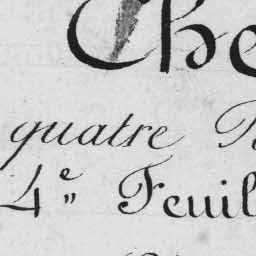 Che
quatre
4e. Feuil